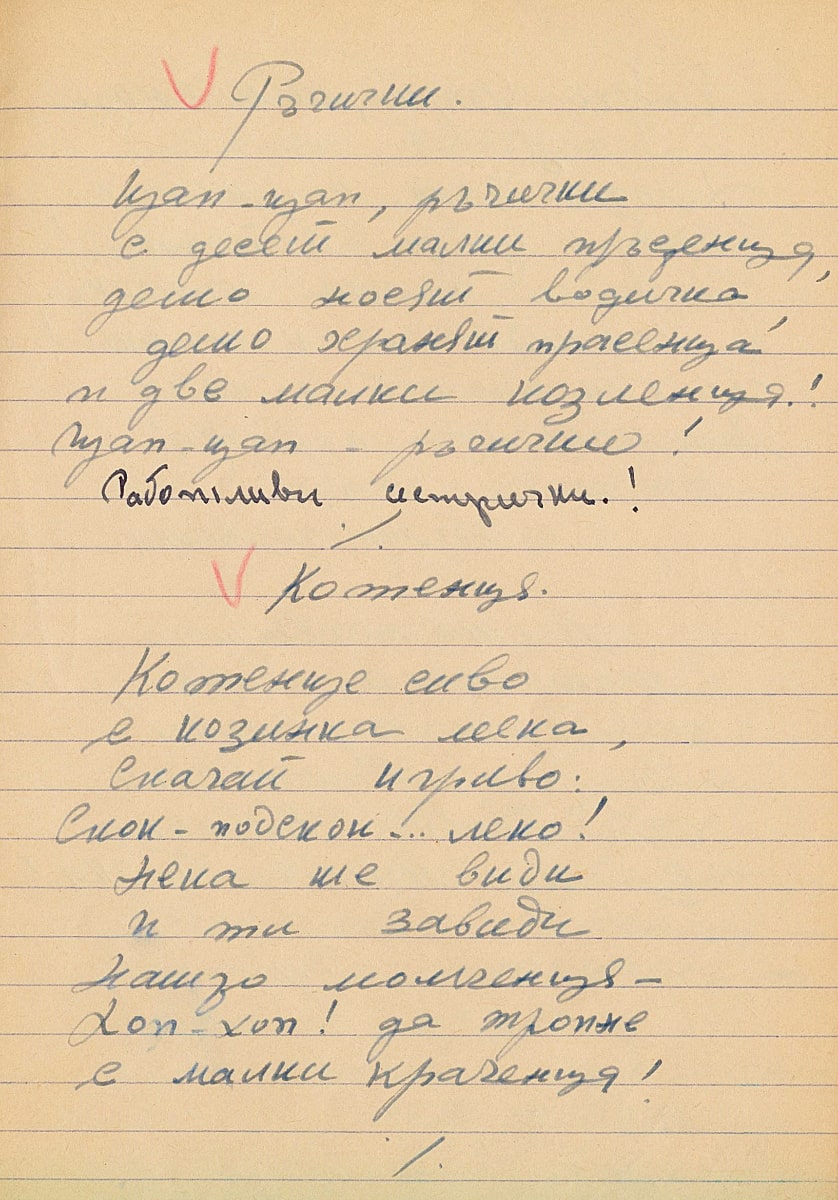 Ръчички.
Цап-цап, ръчички
с десет малки пръстенца,
дето носят водичка,
дето хранят прасенца
и две малки козленца!
Цап-цап - ръчички!
Работливи сестрички.!
Котенця.
Котенце сиво
с козинка лека,
Скачай игриво:
Скок-подскок... леко!
Нека те види
и ти завиди
нашто момченця-
Хоп-хоп! да тропне
с малки краченця!